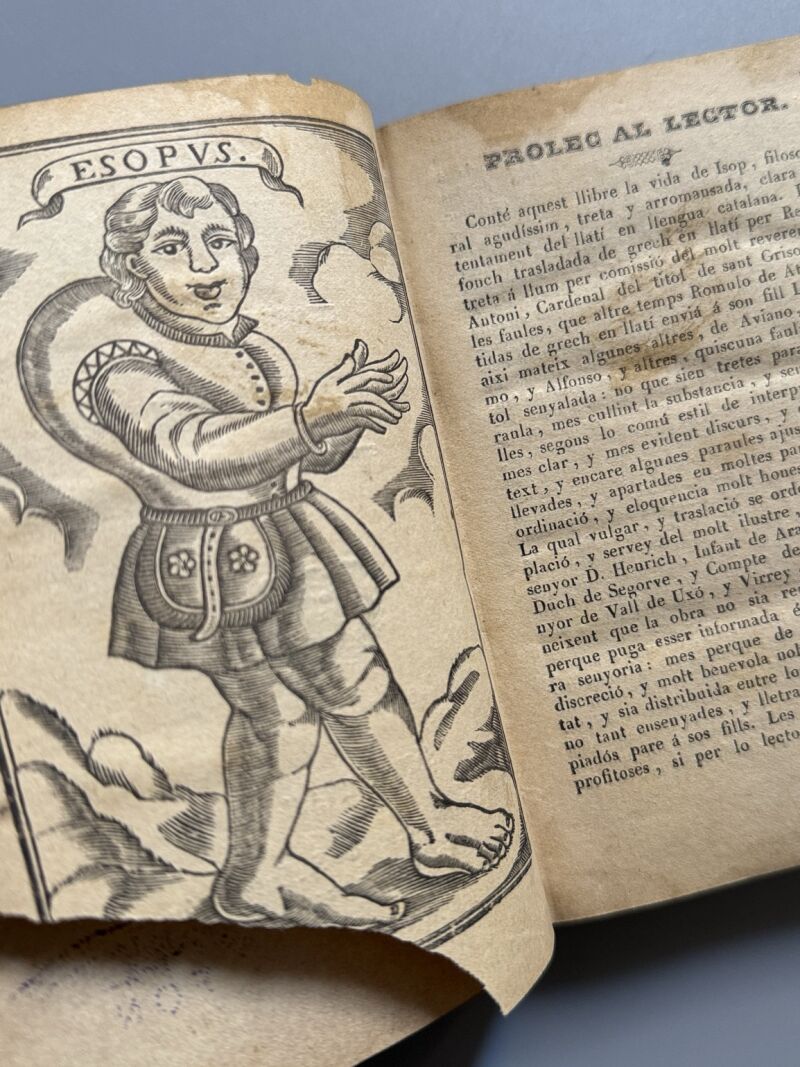 ESOPVS.
PROLEG AL LECTOR.
Conté aquest llibre la vida de Isop, filoso
ral agudíssim, treta y arromansada, clara
tentament del llatí en llengua catalana.
fonch trasladada de grech en llatí per Re
treta á llum per comissió del molt reveren
Antoni, Cardenal del títol de sant Griso
les faules, que altre temps Romulo de At
tidas de grech en llatí enviá á son fill
així mateix algunes altres, de Aviano,
mo, y Alfonso, y altres, quiscuna faul
tol senyalada: no que sien tretes para
raula, mes cullint la substancia, y se
lles, segons lo comú estil de interp
mes clar, y mes evident discurs, y
text, y encare algunes paraules ajus
llevades, y apartades en moltes pa
ordinació, y eloquencia molt hones
La qual vulgar, y traslació se orde
plació, y servey del molt ilustre,
senyor D. Henrich, Infant de Ara
Duch de Segorve, y Compte de
nyor de Vall de Uxó, y Virrey
neixent que la obra no sia re
perque puga esser informada é
ra senyoria: mes perque de
discreció, y molt benevola vol
tat, y sia distribuida entre lo
no tant ensenyades, y lletra
piadós pare á sos fills. Les
profitoses, si per lo lecto